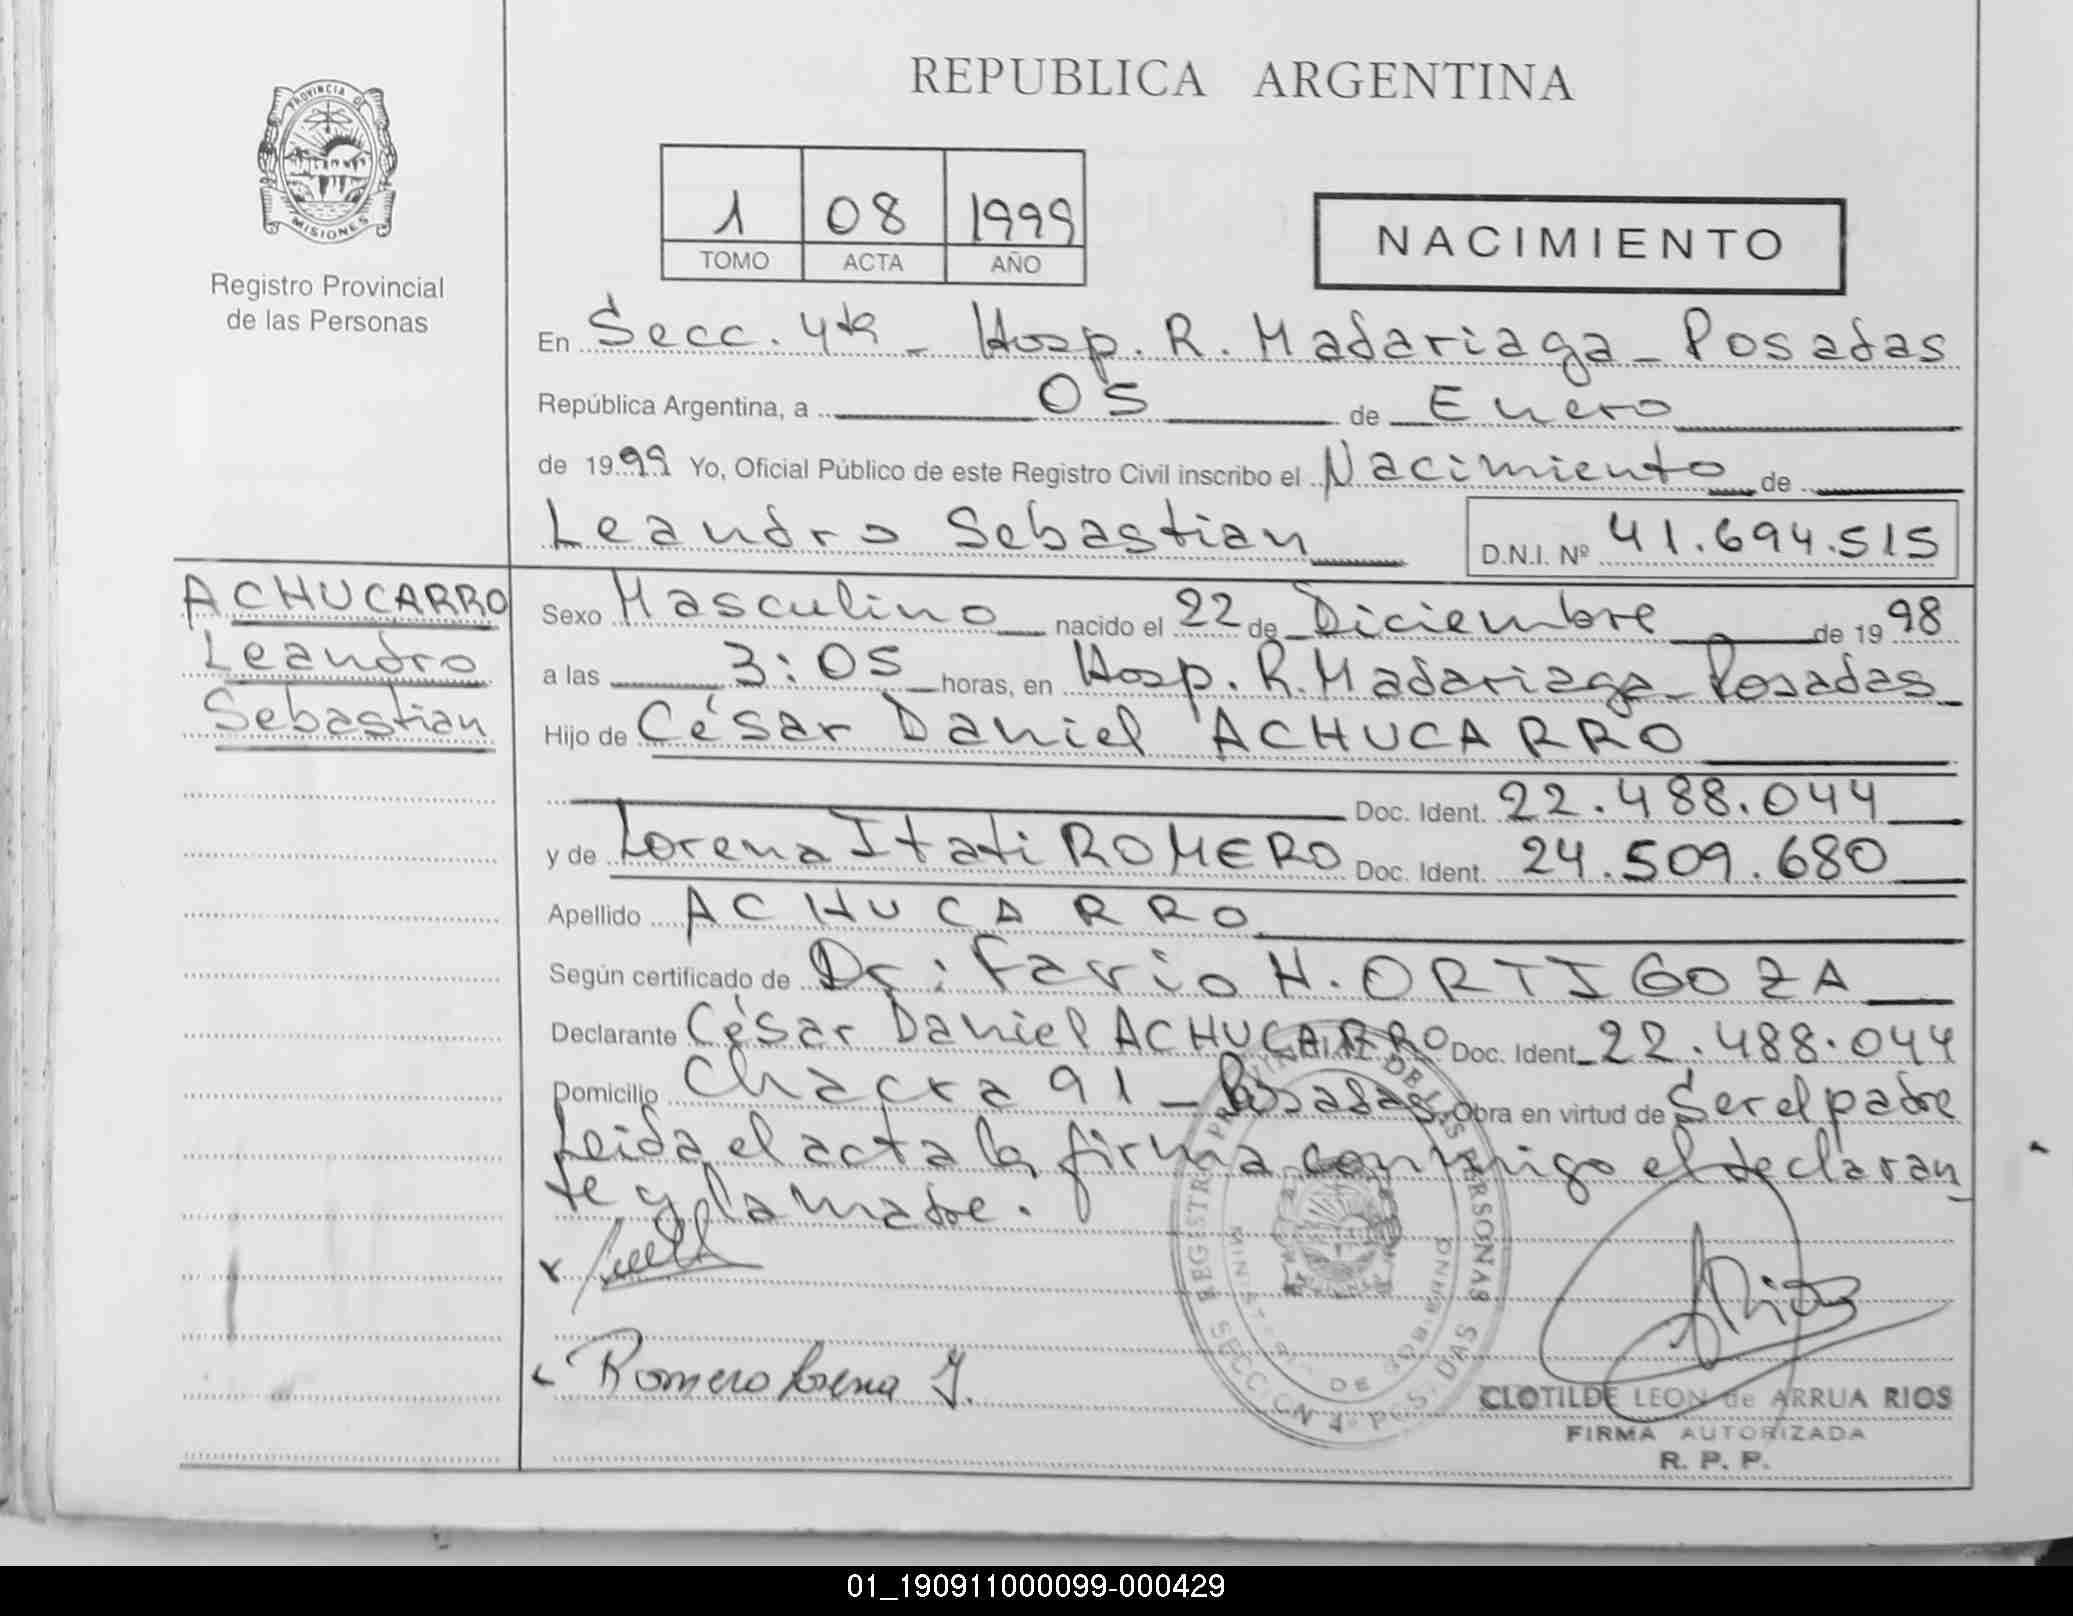 REPUBLICA ARGENTINA
PROVINCIA DE
MISIONES
Registro Provincial
de las Personas
1 08 1999
TOMO ACTA AÑO
NACIMIENTO
En Secc. 4ta - Hosp. R. Madariaga - Posadas
República Argentina, a 05 de Enero
de 1999 Yo, Oficial Público de este Registro Civil inscribo el Nacimiento de
Leandro Sebastian D.N.I. Nº 41.694.515
ACHUCARRO
Leandro
Sebastian
Sexo Masculino nacido el 22 de Diciembre de 1998
a las 3:05 horas, en Hosp. R. Madariaga - Posadas
Hijo de César Daniel ACHUCARRO
Doc. Ident. 22.488.044
y de Lorena Itati ROMERO Doc. Ident. 24.509.680
Apellido ACHUCARRO
Según certificado de Dr: Favio H. ORTIGOZA
Declarante César Daniel ACHUCARRO Doc. Ident. 22.488.044
Domicilio Chacra 91 - Posadas Obra en virtud de Ser el padre
Leida el acta la firma conmigo el declaran
te y la madre.
REGISTRO PROVINCIAL DE LAS PERSONAS
MINISTERIO DE GOBIERNO
SECCION 4º POSADAS
Romero Lorena I.
Rios
CLOTILDE LEON de ARRUA RIOS
FIRMA AUTORIZADA
R. P. P.
01_190911000099-000429